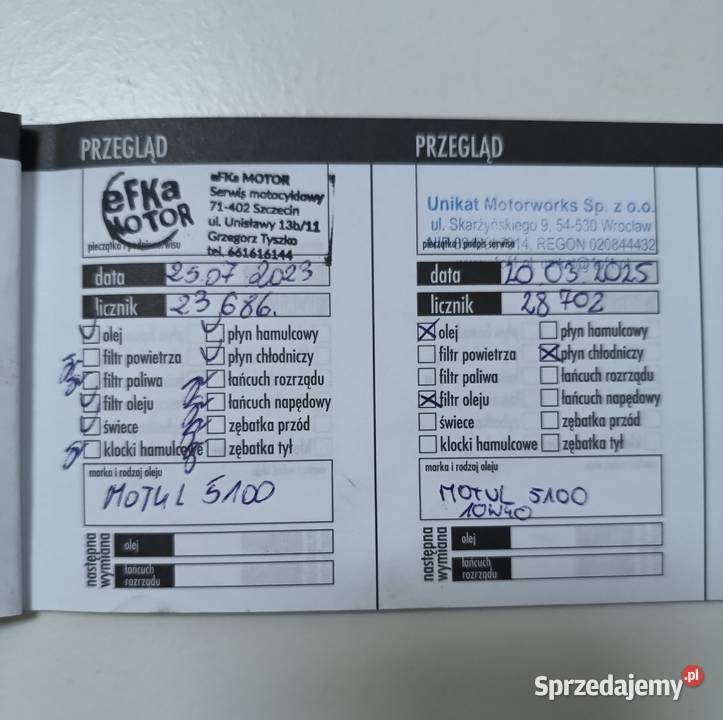 PRZEGLĄD
eFKa MOTOR
eFKa MOTOR
Serwis motocyklowy
71-402 Szczecin
ul. Unisławy 13b/11
Grzegorz Tyszko
tel. 661616144
pieczątka i podpis serwisu
data 25.07 2023
licznik 23 686.
olej płyn hamulcowy
filtr powietrza płyn chłodniczy
filtr paliwa łańcuch rozrządu
filtr oleju łańcuch napędowy
świece zębatka przód
klocki hamulcowe zębatka tył
marka i rodzaj oleju
MOTUL 5100
następna wymiana
olej
łańcuch rozrządu
PRZEGLĄD
Unikat Motorworks Sp. z o.o.
ul. Skarżyńskiego 9, 54-530 Wrocław
REGON 020844432
pieczątka i podpis serwisu
data 20.03.2025
licznik 28 702
olej płyn hamulcowy
filtr powietrza płyn chłodniczy
filtr paliwa łańcuch rozrządu
filtr oleju łańcuch napędowy
świece zębatka przód
klocki hamulcowe zębatka tył
marka i rodzaj oleju
MOTUL 5100
10W40
następna wymiana
olej
łańcuch rozrządu
Sprzedajemy.pl